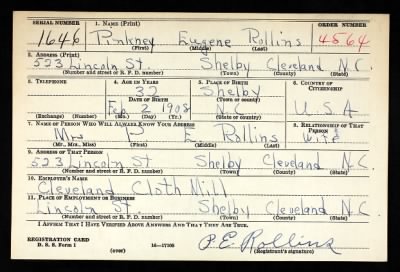 SERIAL NUMBER 1. NAME (Print) ORDER NUMBER
1646 Pinkney Eugene Rollins 4564
(First) (Middle) (Last)
2. ADDRESS (Print)
523 Lincoln St. Shelby Cleveland N.C.
(Number and street or R. F. D. number) (Town) (County) (State)
3. TELEPHONE 4. AGE IN YEARS 5. PLACE OF BIRTH 6. COUNTRY OF CITIZENSHIP
32 Shelby
DATE OF BIRTH (Town or county)
Feb 1908 N.C. U.S.A
(Exchange) (Number) (Mo.) (Day) (Yr.) (State or country)
7. NAME OF PERSON WHO WILL ALWAYS KNOW YOUR ADDRESS 8. RELATIONSHIP OF THAT PERSON
Mrs P E Rollins Wife
(Mr., Mrs., Miss) (First) (Middle) (Last)
9. ADDRESS OF THAT PERSON
523 Lincoln St Shelby Cleveland N.C.
(Number and street or R. F. D. number) (Town) (County) (State)
10. EMPLOYER'S NAME
Cleveland Cloth Mill
11. PLACE OF EMPLOYMENT OR BUSINESS
Lincoln St Shelby Cleveland N.C.
(Number and street or R. F. D. number) (Town) (County) (State)
I AFFIRM THAT I HAVE VERIFIED ABOVE ANSWERS AND THAT THEY ARE TRUE.
REGISTRATION CARD
D. S. S. Form 1 (over) 16—17105 P.E. Rollins